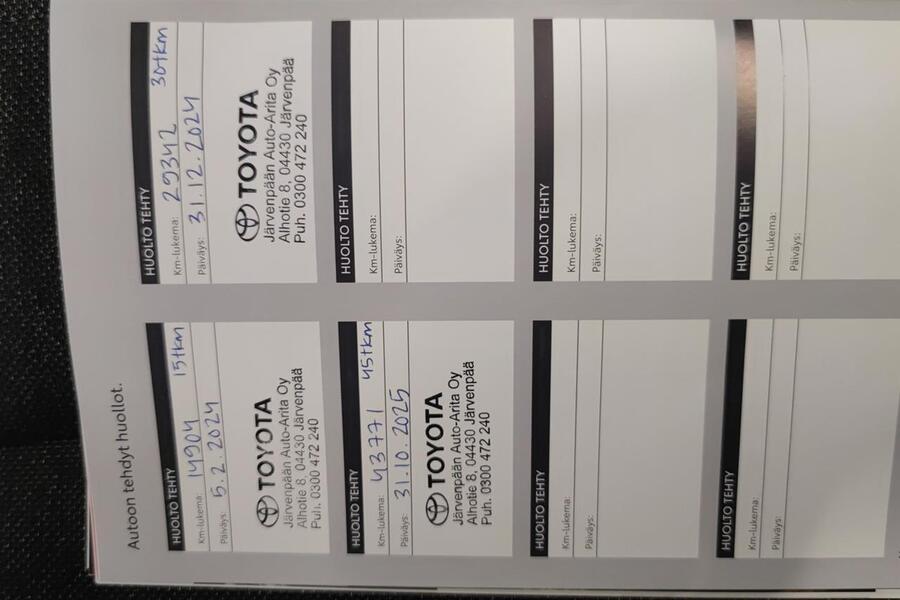 Autoon tehdyt huollot.
HUOLTO TEHTY
Km-lukema: 14904 15tkm
Päiväys: 5.2.2024
TOYOTA
Järvenpään Auto-Arita Oy
Alhotie 8, 04430 Järvenpää
Puh. 0300 472 240
HUOLTO TEHTY
Km-lukema: 29342 30tkm
Päiväys: 31.12.2024
TOYOTA
Järvenpään Auto-Arita Oy
Alhotie 8, 04430 Järvenpää
Puh. 0300 472 240
HUOLTO TEHTY
Km-lukema: 43771 45tkm
Päiväys: 31.10.2025
TOYOTA
Järvenpään Auto-Arita Oy
Alhotie 8, 04430 Järvenpää
Puh. 0300 472 240
HUOLTO TEHTY
Km-lukema:
Päiväys:
HUOLTO TEHTY
Km-lukema:
Päiväys:
HUOLTO TEHTY
Km-lukema:
Päiväys:
HUOLTO TEHTY
Km-lukema:
Päiväys:
HUOLTO TEHTY
Km-lukema:
Päiväys: